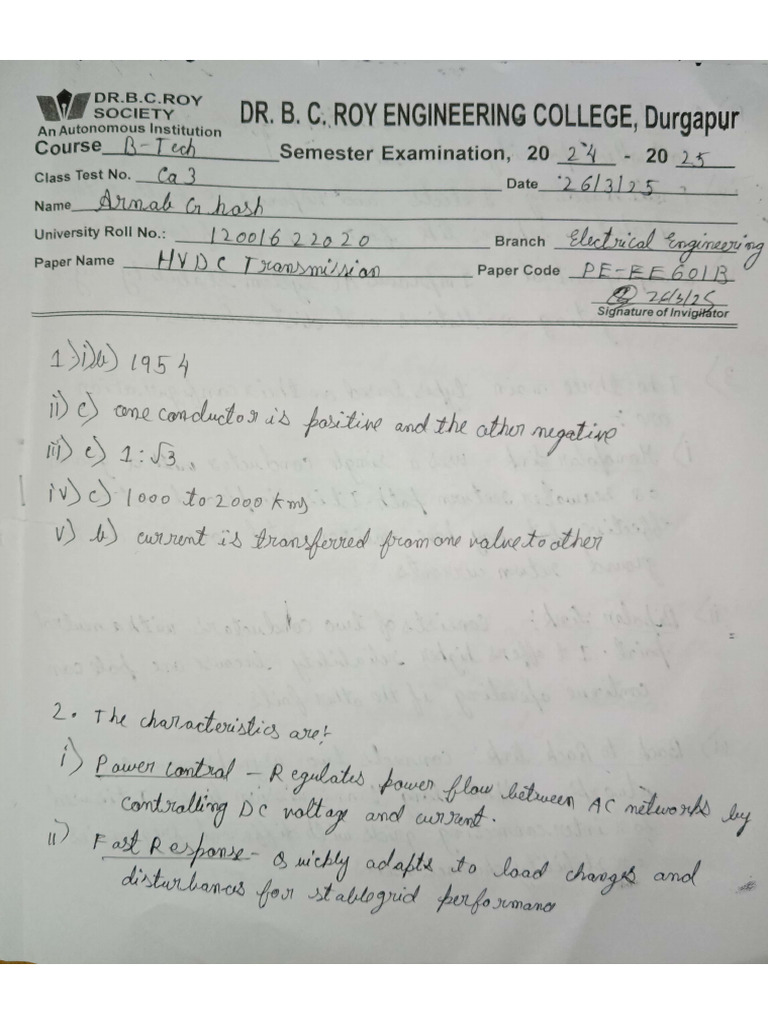 DR.B.C.ROY
SOCIETY
An Autonomous Institution
DR. B. C. ROY ENGINEERING COLLEGE, Durgapur
Course B-Tech Semester Examination, 2024 - 2025
Class Test No. Ca3 Date 26/3/25
Name Arnab Ghosh
University Roll No.: 12001622020 Branch Electrical Engineering
Paper Name HVDC Transmission Paper Code PE-EE601B
26/3/25
Signature of Invigilator
1) i) b) 1954
ii) c) one conductor is positive and the other negative
iii) c) 1:√3
iv) c) 1000 to 2000 kms
v) b) current is transferred from one value to other
2. The characteristics are:
i) Power control - Regulates power flow between AC networks by
controlling DC voltage and current.
ii) Fast Response - Quickly adapts to load changes and
disturbances for stable grid performanc